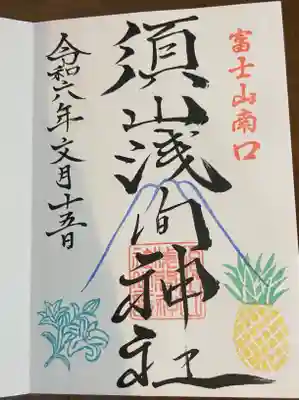 富士山南口
須山浅間神社
令和六年文月十五日